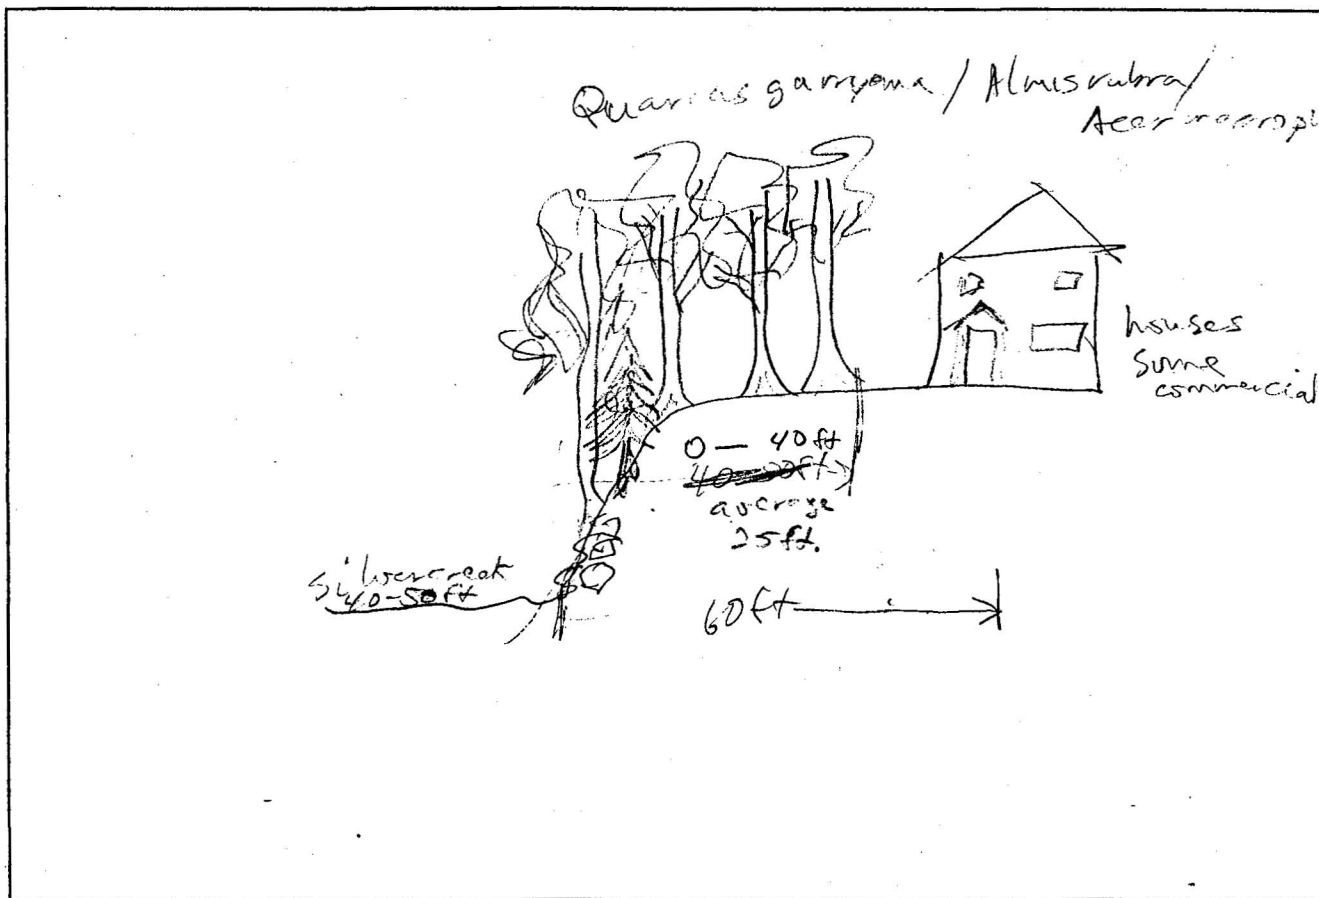 Quarcas garryana / Almis rubra /
Acer macroph
houses
some
commercial
0 — 40 ft
average
25 ft.
Silvercreek
40-50 ft
60 ft